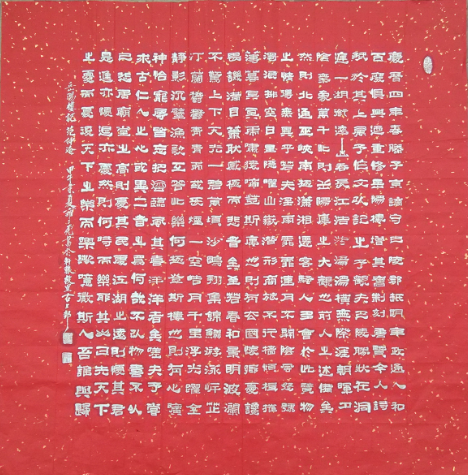 慶曆四年春滕子京謫守巴陵郡越明年政通人和
百廢俱興乃重修岳陽樓增其舊制刻唐賢今人詩
賦於其上屬予作文以記之予觀夫巴陵勝狀在洞
庭一湖銜遠山吞長江浩浩湯湯橫無際涯朝暉夕
陰氣象萬千此則岳陽樓之大觀也前人之述備矣
然則北通巫峽南極瀟湘遷客騷人多會於此覽物
之情得無異乎若夫霪雨霏霏連月不開陰風怒號
濁浪排空日星隱曜山嶽潛形商旅不行檣傾楫摧
薄暮冥冥虎嘯猿啼登斯樓也則有去國懷鄉憂讒
畏譏滿目蕭然感極而悲者矣至若春和景明波瀾
不驚上下天光一碧萬頃沙鷗翔集錦鱗游泳岸芷
汀蘭郁郁青青而或長煙一空皓月千里浮光躍金
靜影沉璧漁歌互答此樂何極登斯樓也則有心曠
神怡寵辱皆忘把酒臨風其喜洋洋者矣嗟夫予嘗
求古仁人之心或異二者之為何哉不以物喜不以
己悲居廟堂之高則憂其民處江湖之遠則憂其君
是進亦憂退亦憂然則何時而樂耶其必曰先天下
之憂而憂後天下之樂而樂歟噫微斯人吾誰與歸
岳陽樓記 范仲淹 甲午